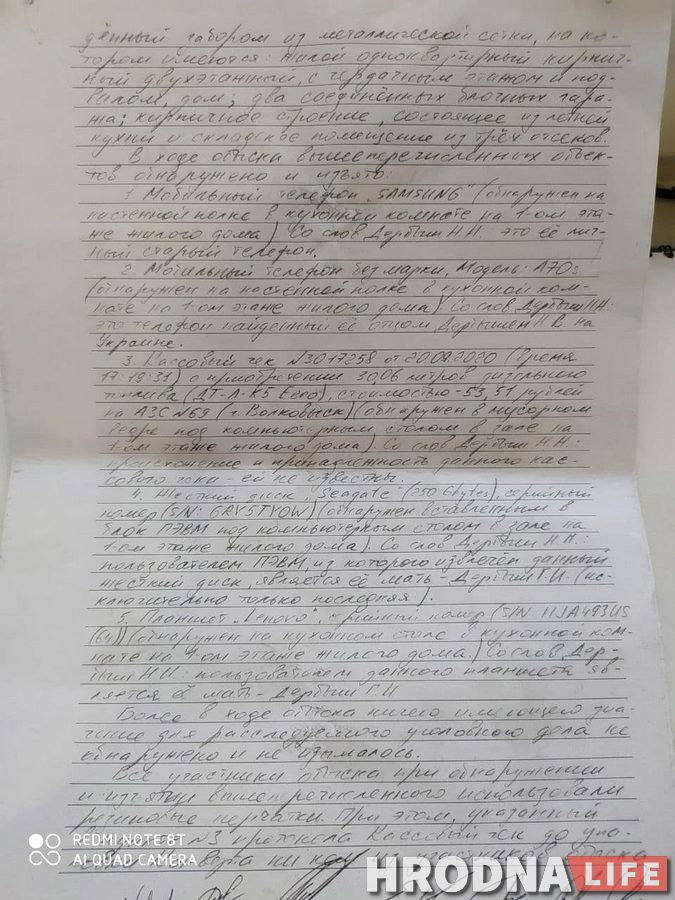 дённый забором из металлической сетки, на ко-
тором имеются: жилой одноквартирный кирпич-
ный двухэтажный, с чердачным этажом и под-
валом, дом; два соединённых блочных гара-
жа; кирпичное строение, состоящее из летней
кухни и складское помещение из трёх отсеков.
В ходе обыска вышеперечисленных объек-
тов обнаружено и изъято:
1. Мобильный телефон „SAMSUNG" (обнаружен на
настенной полке в кухонной комнате на 1-ом эта-
же жилого дома). Со слов Дербыш Н.Н.: это её лич-
ный старый телефон.
2. Мобильный телефон без марки, Модель: A70s
(обнаружен на настенной полке в кухонной ком-
нате на 1-ом этаже жилого дома). Со слов Дербыш Н.Н.:
это телефон найденный её отцом Дербышем Н.В. на
Украине.
3. Кассовый чек №3017258 от 20.09.2020 (время
17:19:31) о приобретении 30,06 литров дизельного
топлива (ДТ-Л-К5 Евро), стоимостью - 53,51 рублей
на АЗС №69 (г. Волковыск) (обнаружен в мусорном
ведре под компьютерным столом в зале на
1-ом этаже жилого дома). Со слов Дербыш Н.Н.:
происхожение и принадлежность данного кас-
сового чека - ей не известны.
4. Жесткий диск „Seagate" (250 Gbytes), серийный
номер (S/N: 6RY5TYOW) (обнаружен вставленным в
блок ПЭВМ под компьютерным столом в зале на
1-ом этаже жилого дома). Со слов Дербыш Н.Н.:
пользователем ПЭВМ, из которого извлечён данный
жесткий диск, является её мать - Дербыш Г.И. (ис-
ключительно только последняя).
5. Планшет „Lenovo", серийный номер (S/N: HJA493US
(64)) (обнаружен на кухонном столе в кухонной ком-
нате на 1-ом этаже жилого дома.) Со слов Дер-
быш Н.Н.: пользователем данного планшета яв-
ляется её мать - Дербыш Г.И
Более в ходе обыска ничего имеющего зна-
чение для расследуемого уголовного дела не
обнаружено и не изымалось.
Все участники обыска при обнаружении
и изъятии вышеперечисленного использовали
резиновые перчатки. При этом, указанный
в №3 протокола Кассовый чек до упа-
ни обыска
REDMI NOTE 8T
AI QUAD CAMERA
HRODNA LIFE